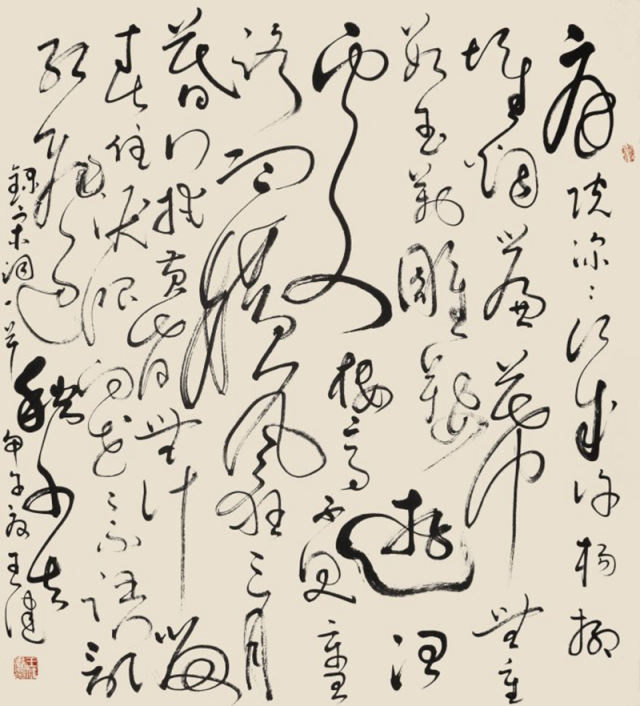 庭院深深深幾许杨柳
堆烟簾幕無重
数玉勒雕鞍遊冶
處楼高不见章臺
路雨横风狂三月
暮门掩黄昏無计留
春住淚眼问花花不语乱
红飛过秋千去
錄宋词一首
甲午 王健